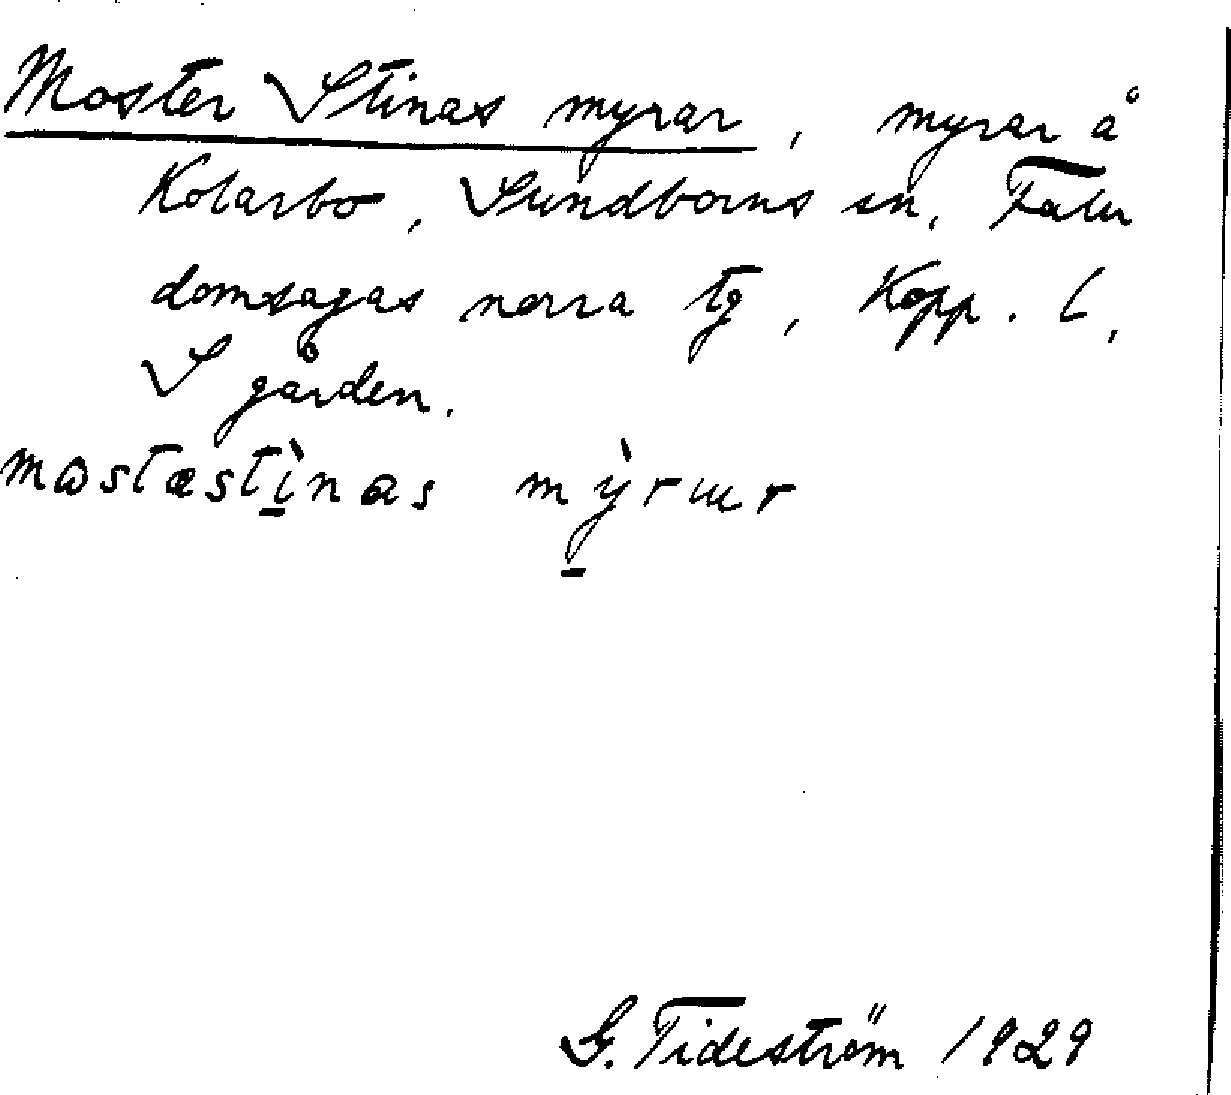 Moster Stinas myrar, myrar å
Kolarbo, Sundborns sn, Falu
domsagas norra tg, Kopp. l,
S gården.
mɷstæstì̠nas mỳ̠rɯr
G. Tideström 1929